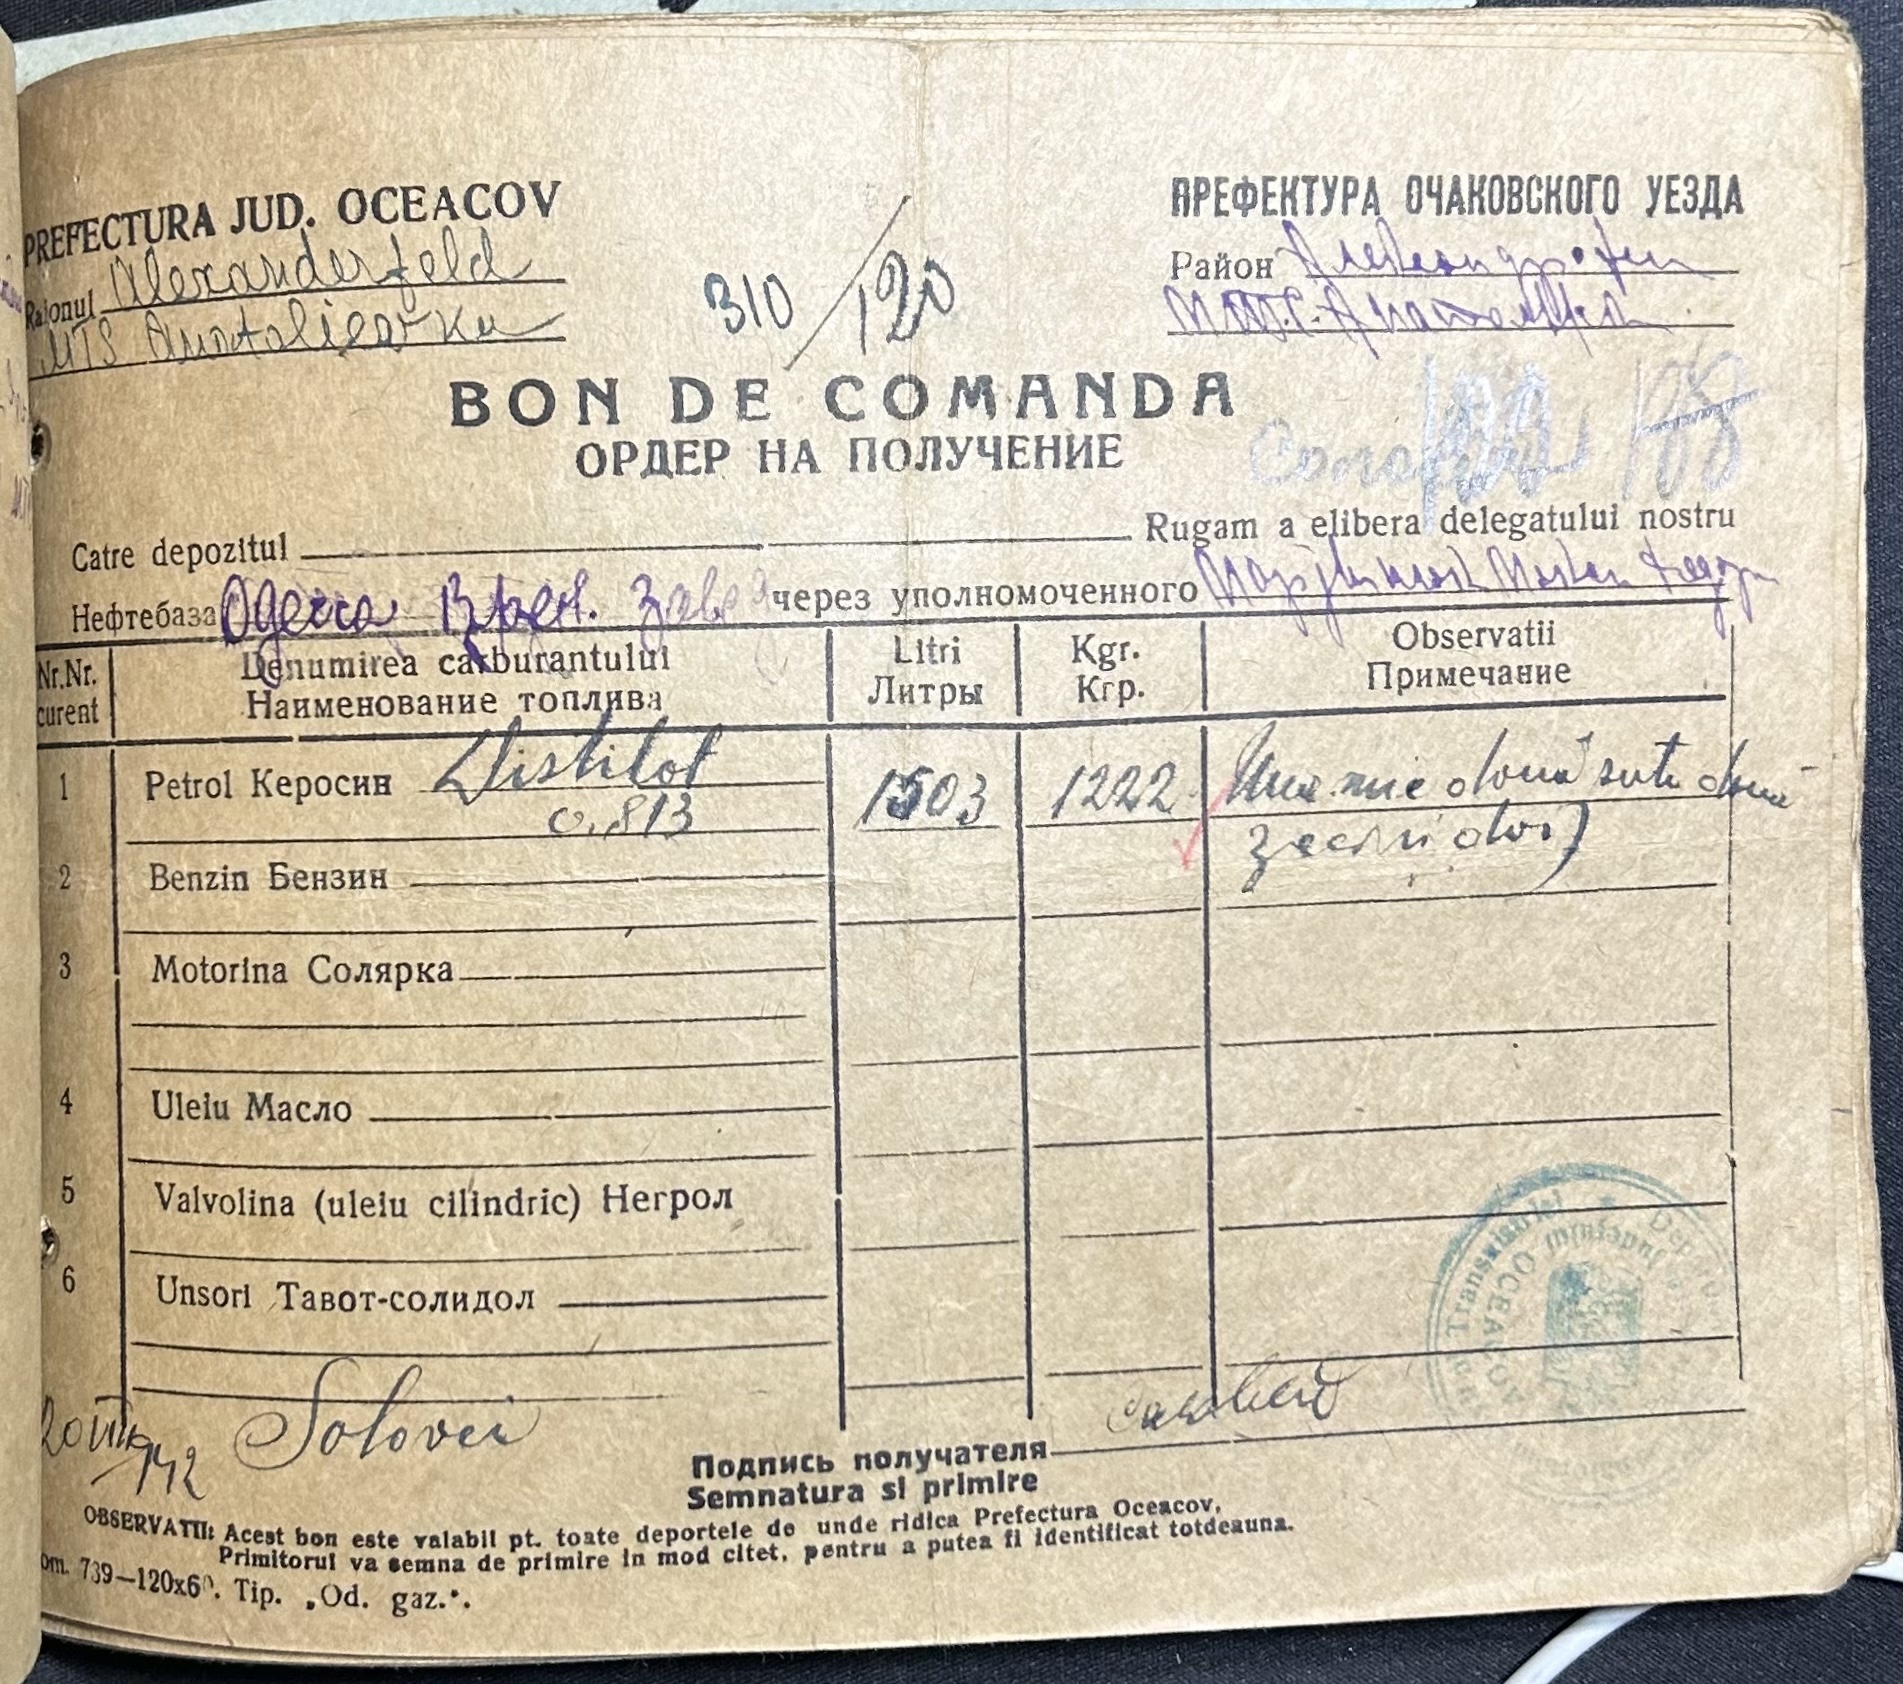 PREFECTURA JUD. OCEACOV
ПРЕФЕКТУРА ОЧАКОВСКОГО УЕЗДА
Raionul Alexanderfeld
Район
MTS Anatolievka
М.Т.С.
310/120
BON DE COMANDA
ОРДЕР НА ПОЛУЧЕНИЕ
188
Catre depozitul Rugam a elibera delegatului nostru
Нефтебаза Одесса завод через уполномоченного
Nr.Nr. curent
Denumirea carburantului
Наименование топлива
Litri
Литры
Kgr.
Кгр.
Observatii
Примечание
1 Petrol Керосин Distilat 1503 1222 Una mie două sute două
0.813 zeci si doi)
2 Benzin Бензин
3 Motorina Солярка
4 Uleiu Масло
5 Valvolina (uleiu cilindric) Негрол
6 Unsori Тавот-солидол
Transnistriei
Judetului
OCEACOV
20 VIII 942 Solovei
Подпись получателя
Semnatura si primire
OBSERVATII: Acest bon este valabil pt. toate deportele de unde ridica Prefectura Oceacov,
Primitorul va semna de primire in mod citet, pentru a putea fi identificat totdeauna.
om. 739—120x60. Tip. „Od. gaz.".